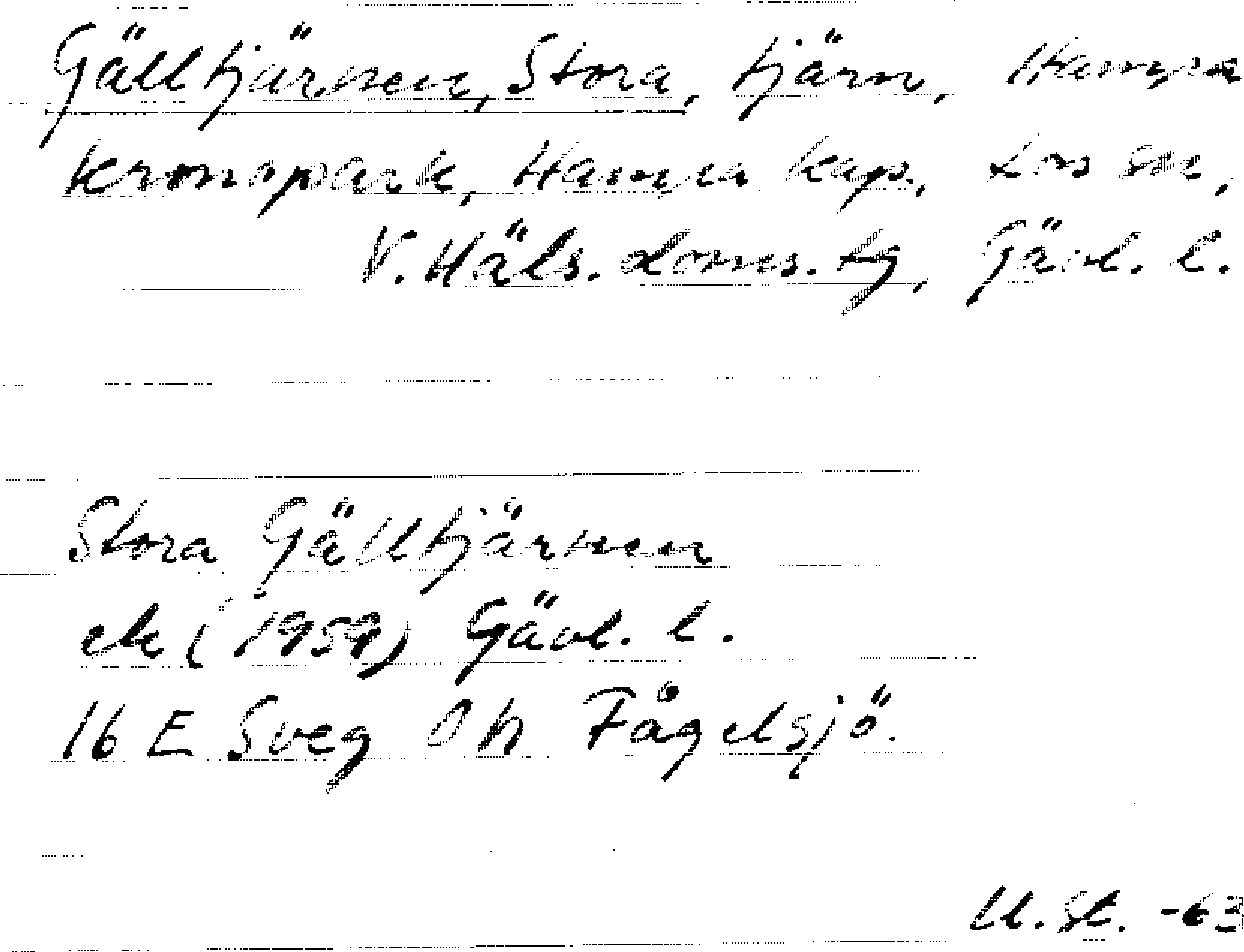 Gälltjärnen, Stora, tjärn, Hamra
kronopark, Hamra kap., Los sn,
V. Häls. doms. tg, Gävl. l.
Stora Gälltjärnen
ek (1959) Gävl. l.
16 E Sveg 0h Fågelsjö.
U. St. -63